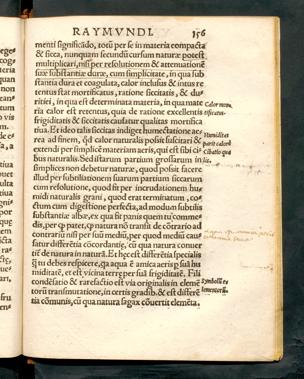 RAYMVNDI. 156
menti significādo, totū per se in materia compacta
& sicca, nunquam secundū cursum naturæ potest
multiplicari, nisi per resolutionem & attenuationē
suæ substātiæ duræ, cum simplicitate, in qua sub
stantia dura et coagulata, calor inclusus & intus re
tentus stat mortificatus, ratione siccitatis, & du
ritiei, in qua est determinata materia, in qua mate
ria calor est retentus, quia de ratione excellentis
frigiditatis & siccitatis causatur qualitas mortifica
tiua. Et ideo talis siccitas indiget humectatione ac
rea ad finem, qd calor naturalis possit suscitari &
extendi per simplicē materiam aeris, quæ est sibi ci
bus naturalis. Sed istarum partium grossarum in
simplices non debetur naturæ, quod posset facere
illud per subtiliationem suarum partium siccarum
cum resolutione, quod fit per incrudationem hu
midi naturalis grani, quod erat terminatum, co
ctum cum digestione perfecta, ad modum subtilis
substantiæ albæ, ex qua fit panis quem tu comme
dis, per qz patet, qz natura nō transit de cōtrario ad
contrariū nisi per suū mediū, per quod mediū cau
satur differētia cōcordantiæ, cū qua natura conuer
tit de natura in naturā. Et hęc est differētia specialis
q̄ tu debes respicere, q̄a aqua ē amica aeris p sua hu
miditatē, et est vicina terræ per suā frigiditatē. Fili
condēsatio & rarefactio est via originalis in elemē
torū transmutatione, in certis gradib. & est differē
tia cōmunis, cū qua natura sagax cōuertit elemēta.
Calor mor
tificatus.
Humiditas
parit calorē
Symbolū e
lementorū.